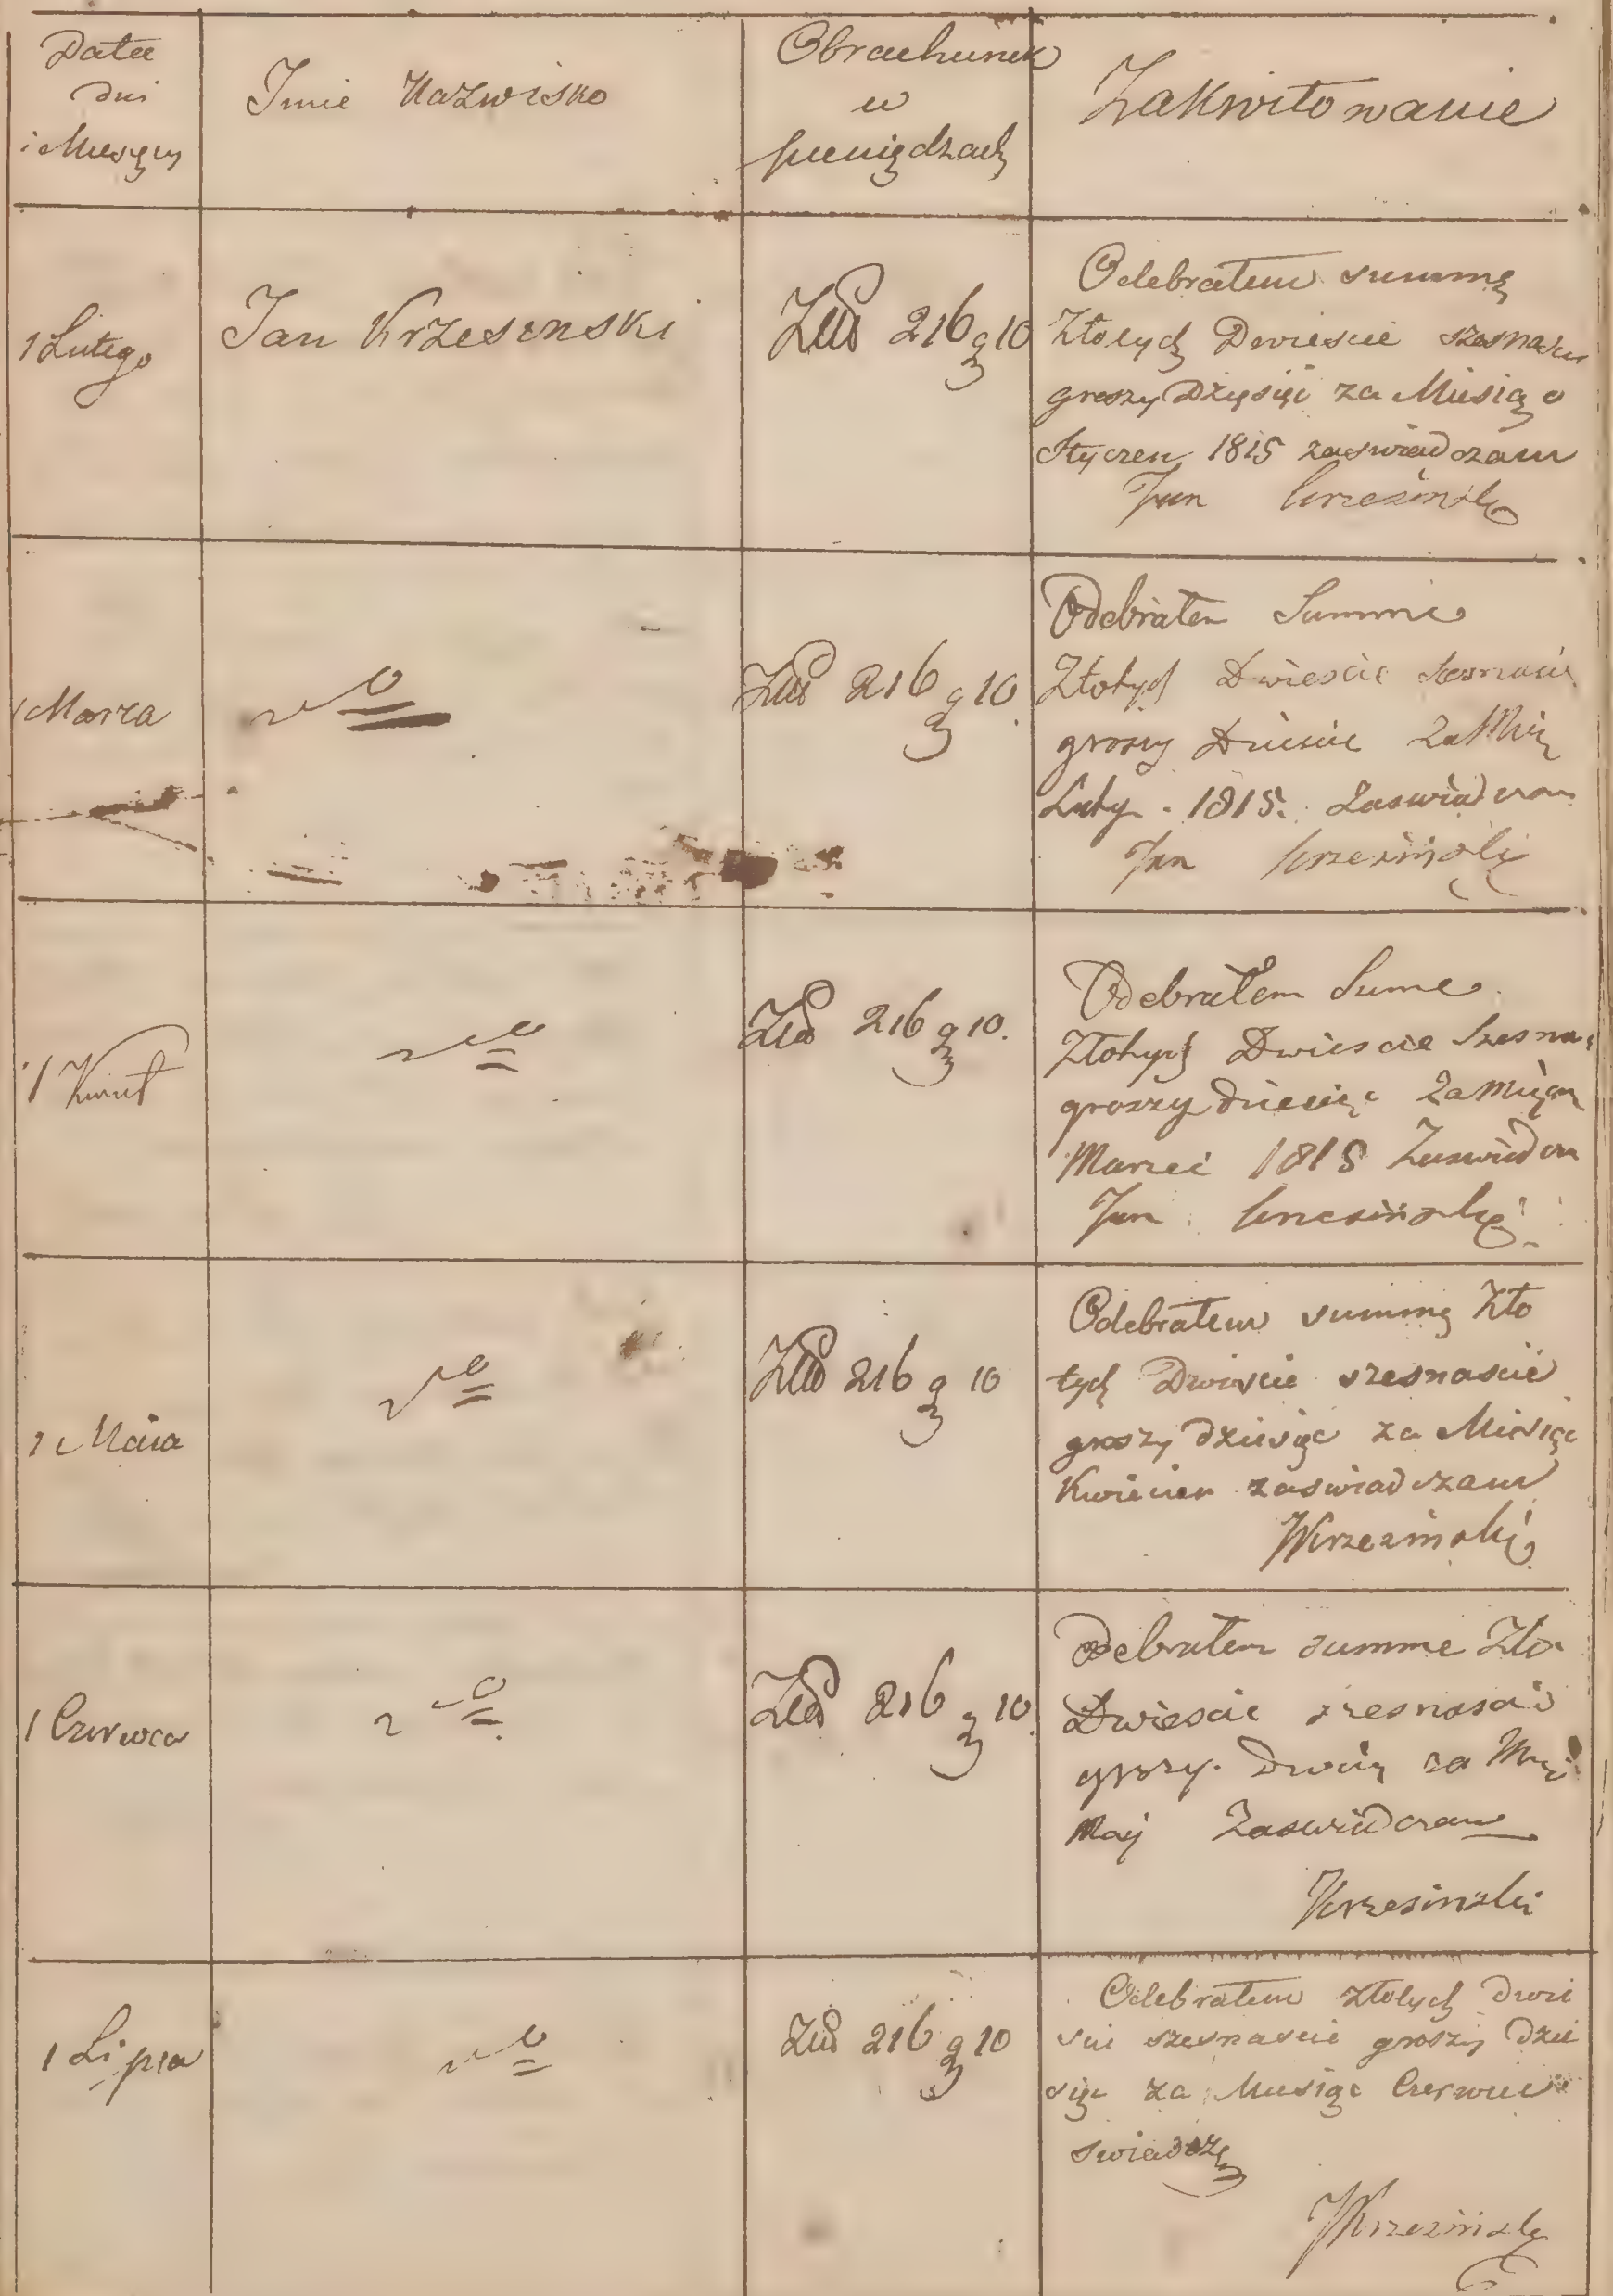 Data
dni
i Miesięcy
Imie Nazwisko
Obrachunek
w
pieniędzach
Zakwitowanie
1 Lutego
Jan Krzesinski
216 g 10
Odebratem summę
Złotych Dwiescie szesnascie
groszy Dzięsięć za Miesiąc
Styczen 1815 zaswiadczam
Jan Krzesinski
1 Marca
216 g 10
Odebrałem Summe
Złotych Dwiescie szesnascie
groszy Dziesiec za
Luty . 1815. Zaswiadczam
Jan Krzesinski
1 Kwiet
216 g 10.
Odebrałem Sume
Złotych Dwiescie Szesna
groszy dziesięc za
Marzec 1815 Zaswiadcza
Jan Krzesinski
1 Maia
216 g 10
Odebratem summę Zło
tych Dwiescie szesnascie
groszy dziesięc za Miesiąc
Kwiecien zaswiadczam
Krzesinski
1 Czerwca
216 g 10
Odebrałem summe Zło
Dwiescie szesnascie
groszy. za
Maj Zaswiadczam
Krzesinski
1 Lipca
216 g 10
Odebratem złotych dwie
scie szesnascie groszy dzie
sięc za Miesiąc Czerwiec
swiadczę
JKrzesinski